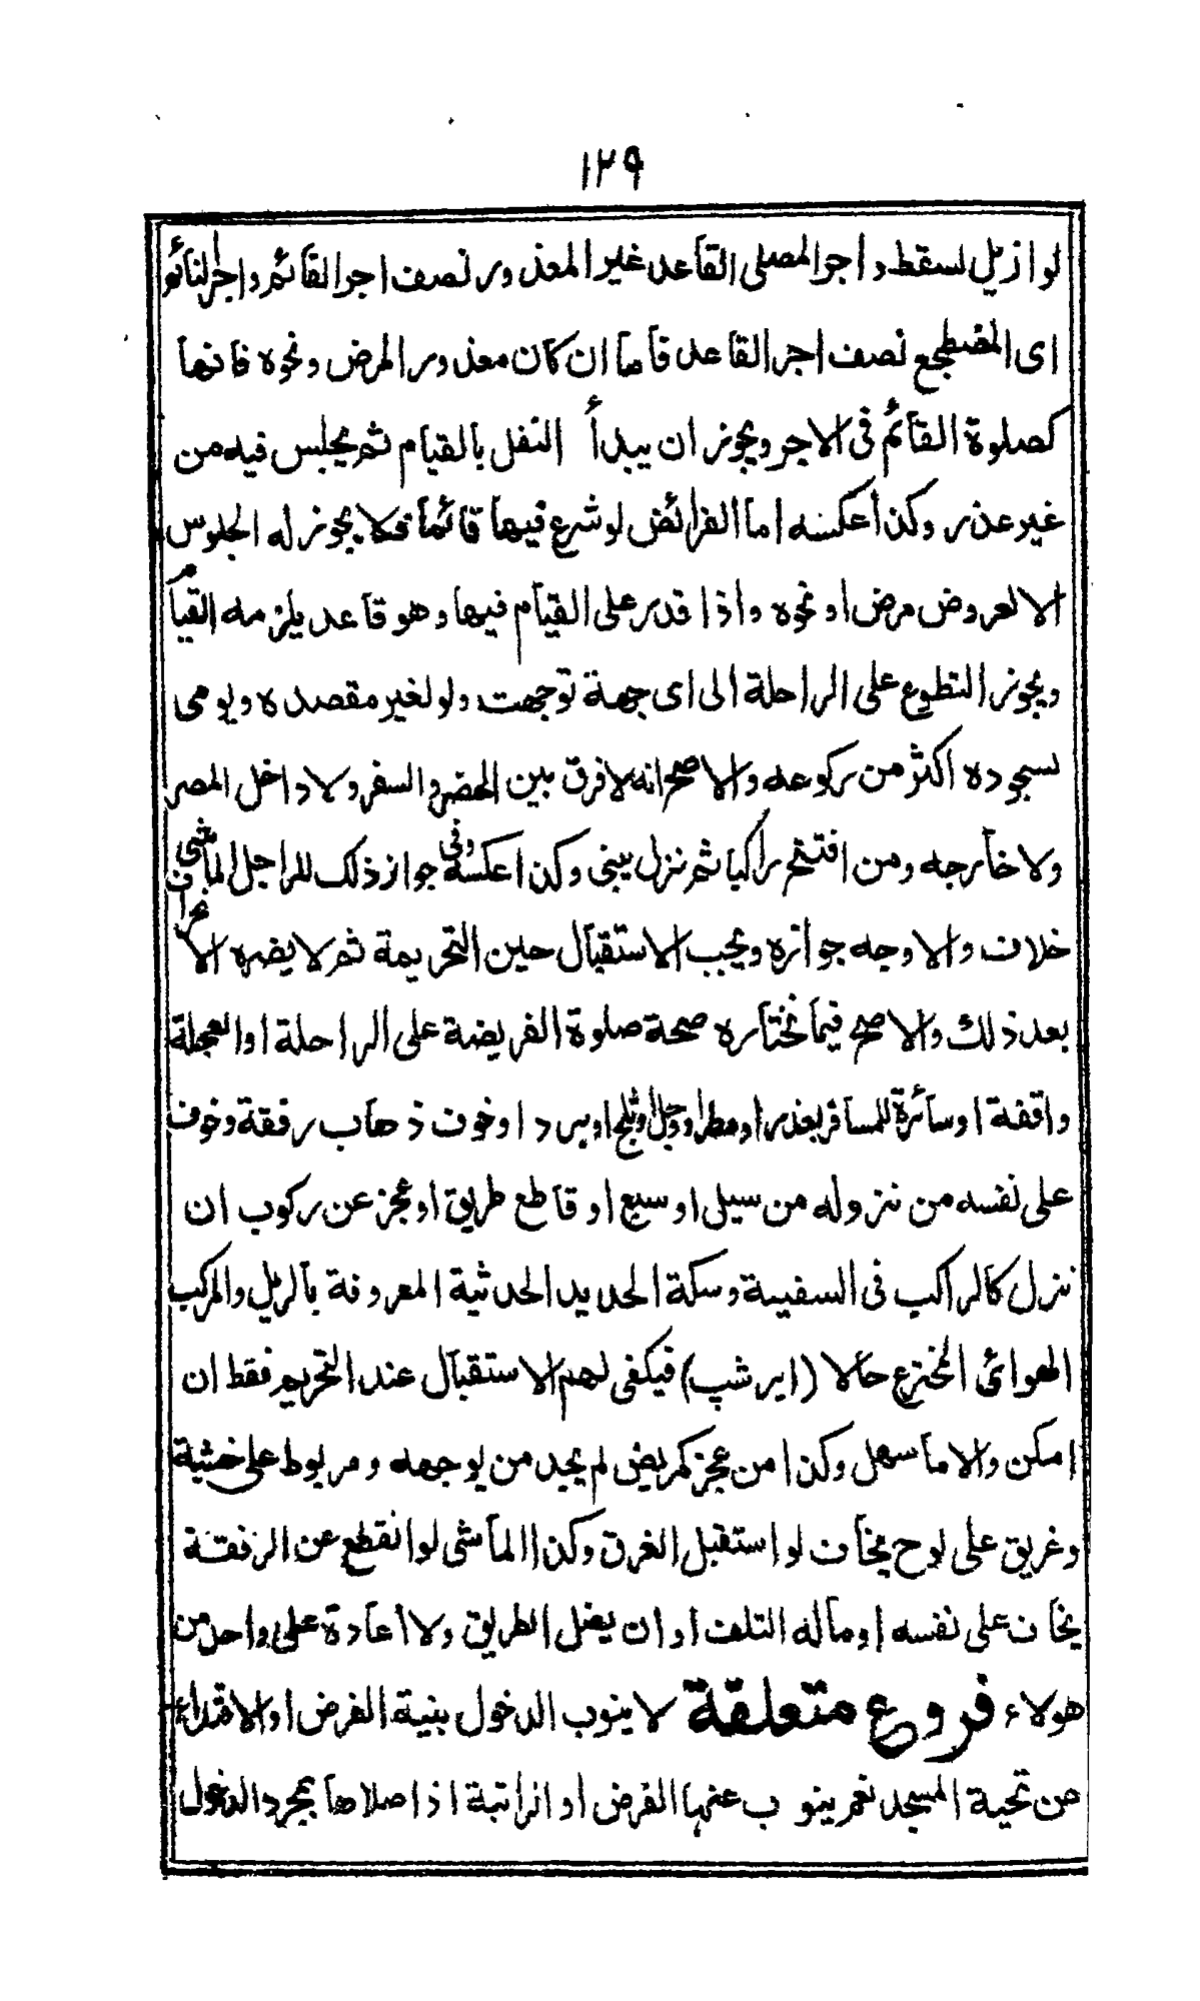 ١٢٩
لو ازيل لسقط واجر المصلى القاعد غير المعذور نصف اجر القائم واجر النائم
اى المضطجع نصف اجر القاعد فاما ان كان معذور المرض ونحوه فانها
كصلوة القائم فى الاجر ويجوز ان يبدأ النفل بالقيام ثم يجلس فيه من
غير عذر وكذا عكسه اما الفرائض لو شرع فيها قائما فلا يجوز له الجلوس
الا لعروض مرض او نحوه واذا قدر على القيام فيها وهو قاعد يلزمه القيام
ويجوز التطوع على الراحلة الى اى جهة توجهت ولو لغير مقصده ويومى
بسجوده اكثر من ركوعه والاصح انه لا فرق بين الحضر والسفر ولا داخل المصر
ولا خارجه ومن افتتح راكبا ثم نزل يبنى وكذا عكسه وفى جواز ذلك للراجل الماشى
خلاف والاوجه جوازه ويجب الاستقبال حين التحريمة ثم لا يضره الانحراف
بعد ذلك والاصح فيما نختاره صحة صلوة الفريضة على الراحلة او العجلة
واقفة او سائرة للمسافر بعذر او مطر او وحل او ثلج او برد او خوف ذهاب رفقة وخوف
على نفسه من نزوله من سيل او سبع او قاطع طريق او عجز عن ركوب ان
نزل كالراكب فى السفينة وسكة الحديد الحدثية المعروفة بالريل والمركب
الهوائى المخترع حالا (ايرشپ) فيكفى لهم الاستقبال عند التحريم فقط ان
امكن والا ما سهل وكذا من عجز كمريض لم يجد من يوجهه ومربوط على خشية
وغريق على لوح يخاف لو استقبل الغرق وكذا الماشى لو انقطع عن الرفقة
يخاف على نفسه او ماله التلف او ان يضل الطريق ولا اعادة على واحد من
هولاء فروع متعلقة لا ينوب الدخول بنية الفرض او الاقتداء
من تحية المسجد نعم ينوب عنها الفرض او الراتبة اذا صلاها بمجرد الدخول